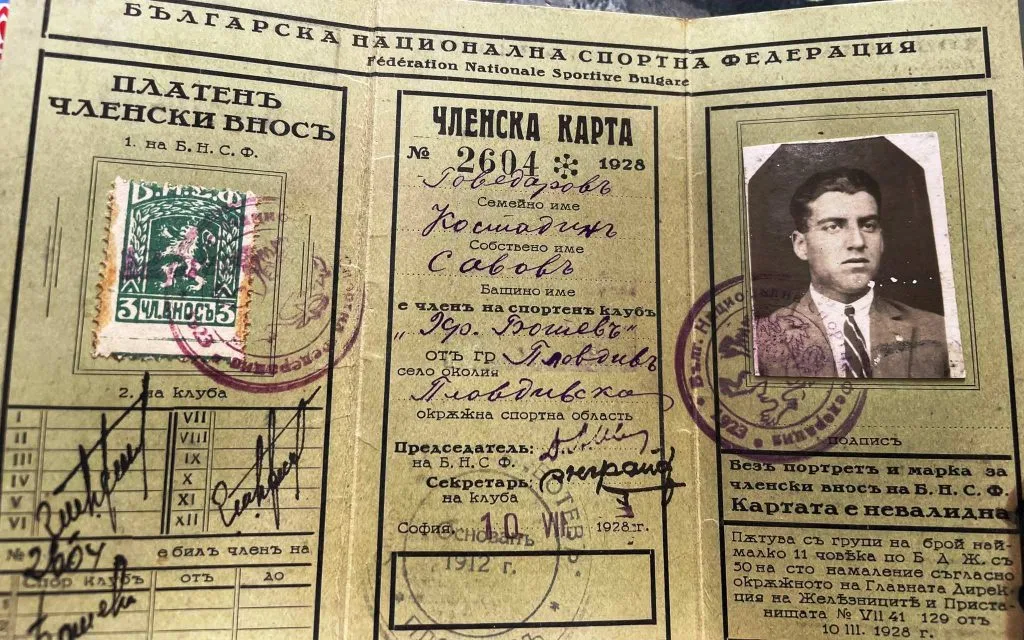 БЪЛГАРСКА НАЦИОНАЛНА СПОРТНА ФЕДЕРАЦИЯ
Fédération Nationale Sportive Bulgare
ПЛАТЕНЪ
ЧЛЕНСКИ ВНОСЪ
1. на Б. Н. С. Ф.
Б.Н.С.Ф
3 ЧЛ.ВНОСЪ 3
2. на клуба
I VII
II VIII
III IX
IV X
V XI
VI XII
№ 2604 е билъ членъ на
Спор. клубъ отъ до
ЧЛЕНСКА КАРТА
№ 2604 1928
Говедаровъ
Семейно име
Костадинъ
Собствено име
Савовъ
Бащино име
е членъ на спортенъ клубъ
Пловдивъ
отъ гр
село околия
Пловдивска
окръжна спортна область
Председатель:
на Б. Н. С. Ф.
Секретарь:
на клуба
София, 10 VII 1928 г.
Основанъ
1912 г.
Бълг. Национална Спортна Федерация 1923
подпись
Безъ портретъ и марка за
членски вносъ на Б. Н. С. Ф.
Картата е невалидна
Пѫтува съ групи на брой най-
малко 11 човѣка по Б. Д. Ж. съ
50 на сто намаление съгласно
окрѫжното на Главната Дирек-
ция на Желѣзниците и Приста-
нищата № VII 41 129 отъ
10 III. 1928 г.